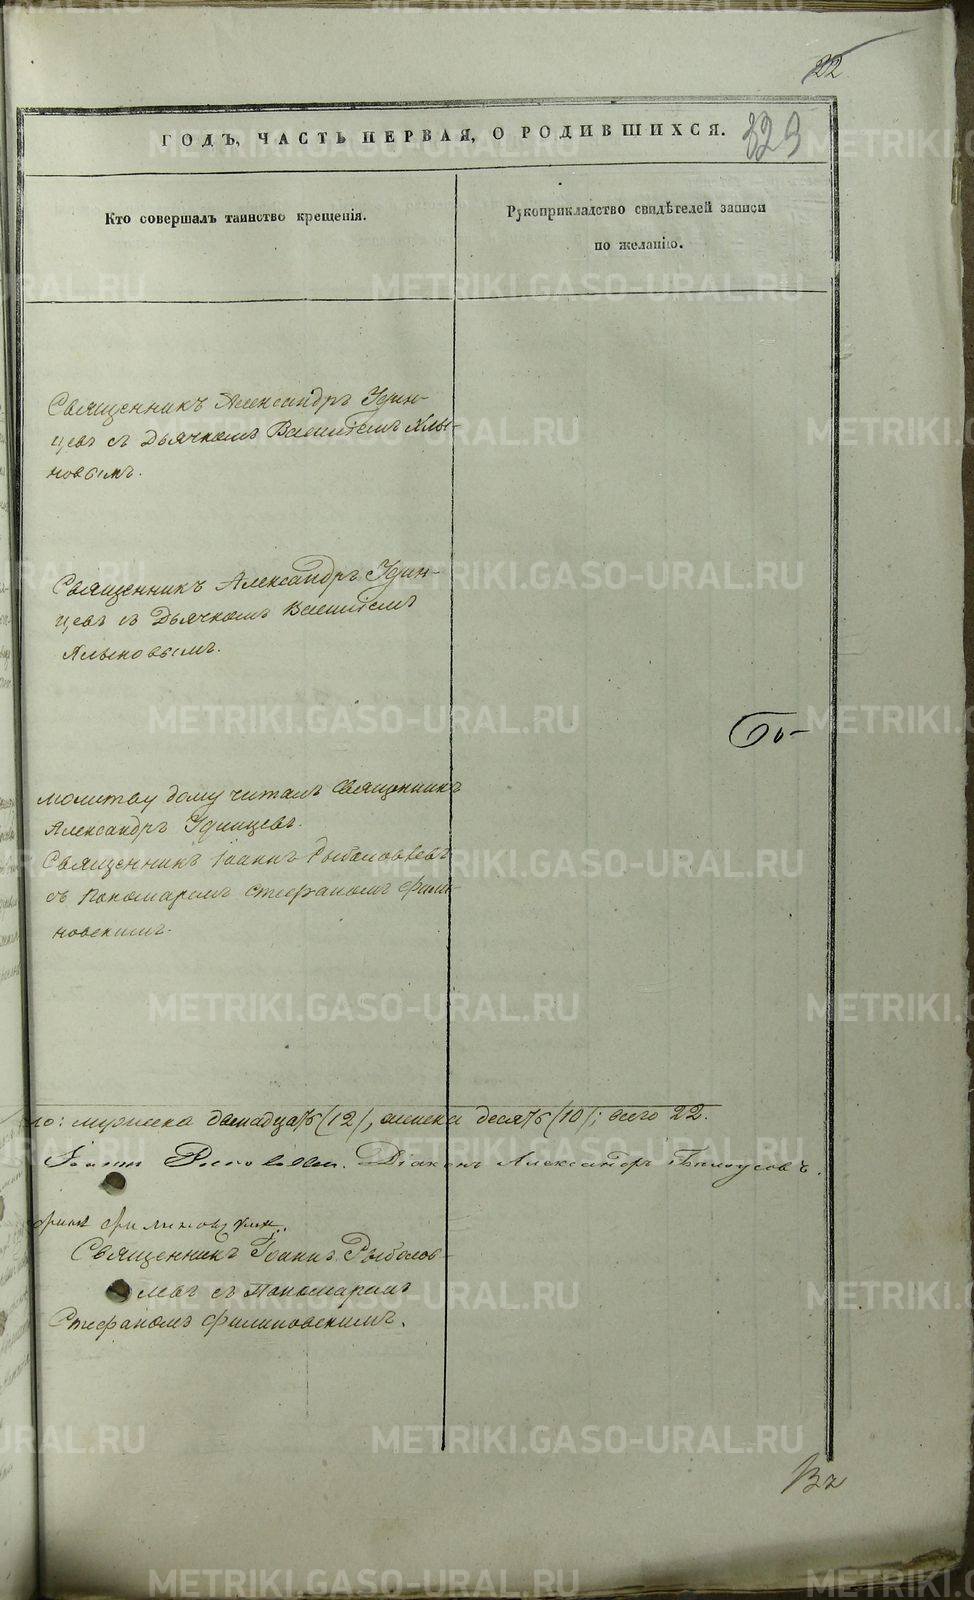 22
ГОДЪ, ЧАСТЬ ПЕРВАЯ, О РОДИВШИХСЯ.
329
Кто совершалъ таинство крещенія.
Рукоприкладство свидѣтелей записи
по желанію.
Священникъ Александръ Удин-
цевъ съ Дьячкомъ Василіемъ Хлы-
новымъ.
Священникъ Александръ Удин-
цевъ съ Дьячкомъ Василіемъ
Хлыновымъ.
молитву дому читалъ Священникъ
Александръ Удинцевъ.
Священникъ Іоаннъ Рыболовлевъ
съ Пономаремъ Стефаномъ Фили-
новскимъ.
мужеска двенадцать (12), женска десять (10); всего 22.
Іоаннъ Рыболовлевъ. Діаконъ Александръ
Священникъ Іоаннъ Рыболов-
левъ съ Пономаремъ
Стефаномъ Филиповскимъ.
Въ
METRIKI.GASO-URAL.RU